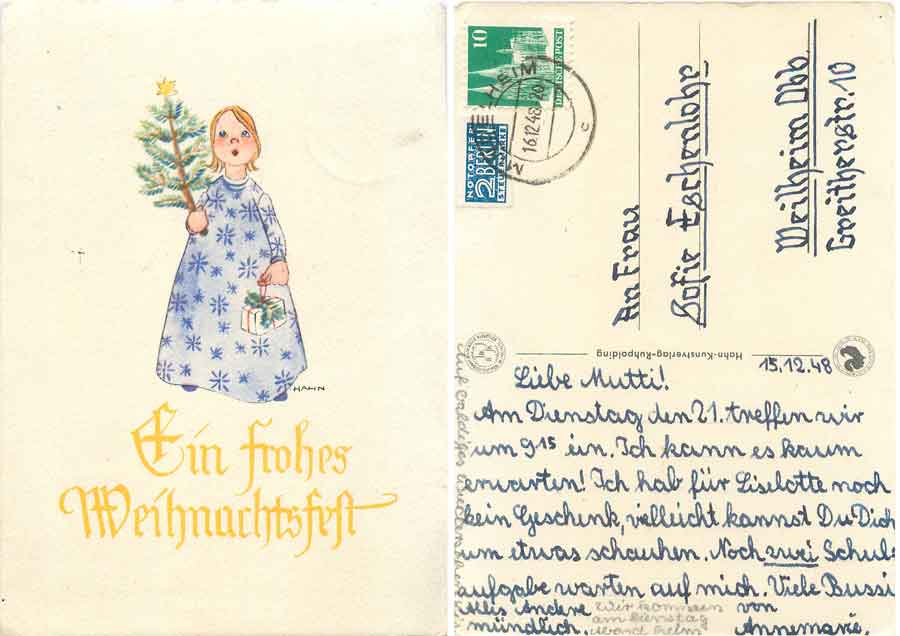 HAHN
Ein frohes
Weihnachtsfest
10
DEUTSCHE POST
NOTOPFER
2 BERLIN
STEUERMARKE
HEIM
16.12.48
c
An Frau
Sofie Eschenlohr
Weilheim Obb.
Greitherstr. 10
Hahn-Kunstverlag-Ruhpolding
15.12.48
Liebe Mutti!
Am Dienstag den 21. treffen wir
um 9 15 ein. Ich kann es kaum
erwarten! Ich hab für Liselotte noch
kein Geschenk, vielleicht kannst Du Dich
um etwas schauhen. Noch zwei Schul-
aufgabe warten auf mich. Viele Bussi
Alles Andere
mündlich.
von
Annemarie.
wir kommen
am Dienstag
Auf baldiges